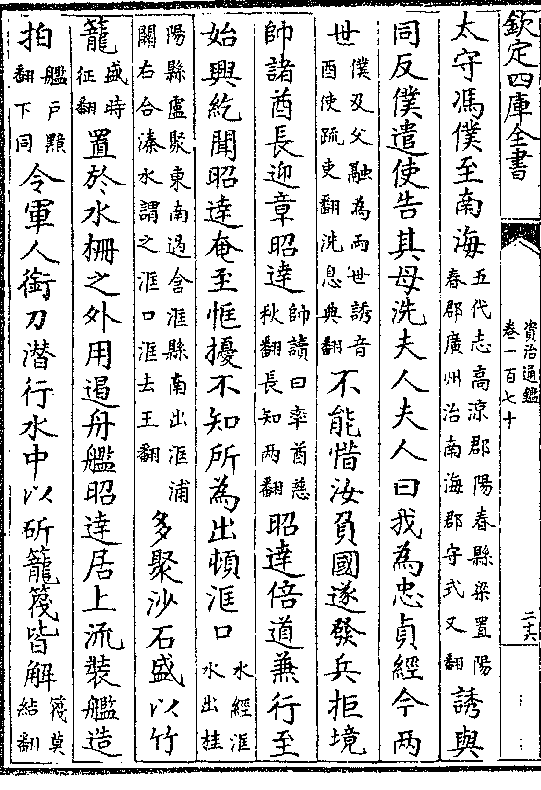 欽定四庫全書
資治通鑑
卷一百七十
二十六
太守馮僕至南海五代志高涼郡陽春縣梁置陽春郡廣州治南海郡守式又翻誘與
同反僕遣使告其母洗夫人夫人曰我為忠貞經今兩
世僕及父融為兩世誘音酉使疏吏翻洗息典翻不能惜汝負國遂發兵拒境
帥諸酋長迎章昭達帥讀曰率酋慈秋翻長知兩翻昭達倍道兼行至
始興紇聞昭達奄至恇擾不知所為出頓洭口水經洭水出桂
陽縣盧聚東南過含洭縣南出洭浦關右合溱水謂之洭口洭去王翻多聚沙石盛以竹
籠盛時征翻置於水柵之外用遏舟艦昭達居上流裝艦造
拍艦戶黯翻下同令軍人銜刀潛行水中以斫籠篾皆解篾莫結翻